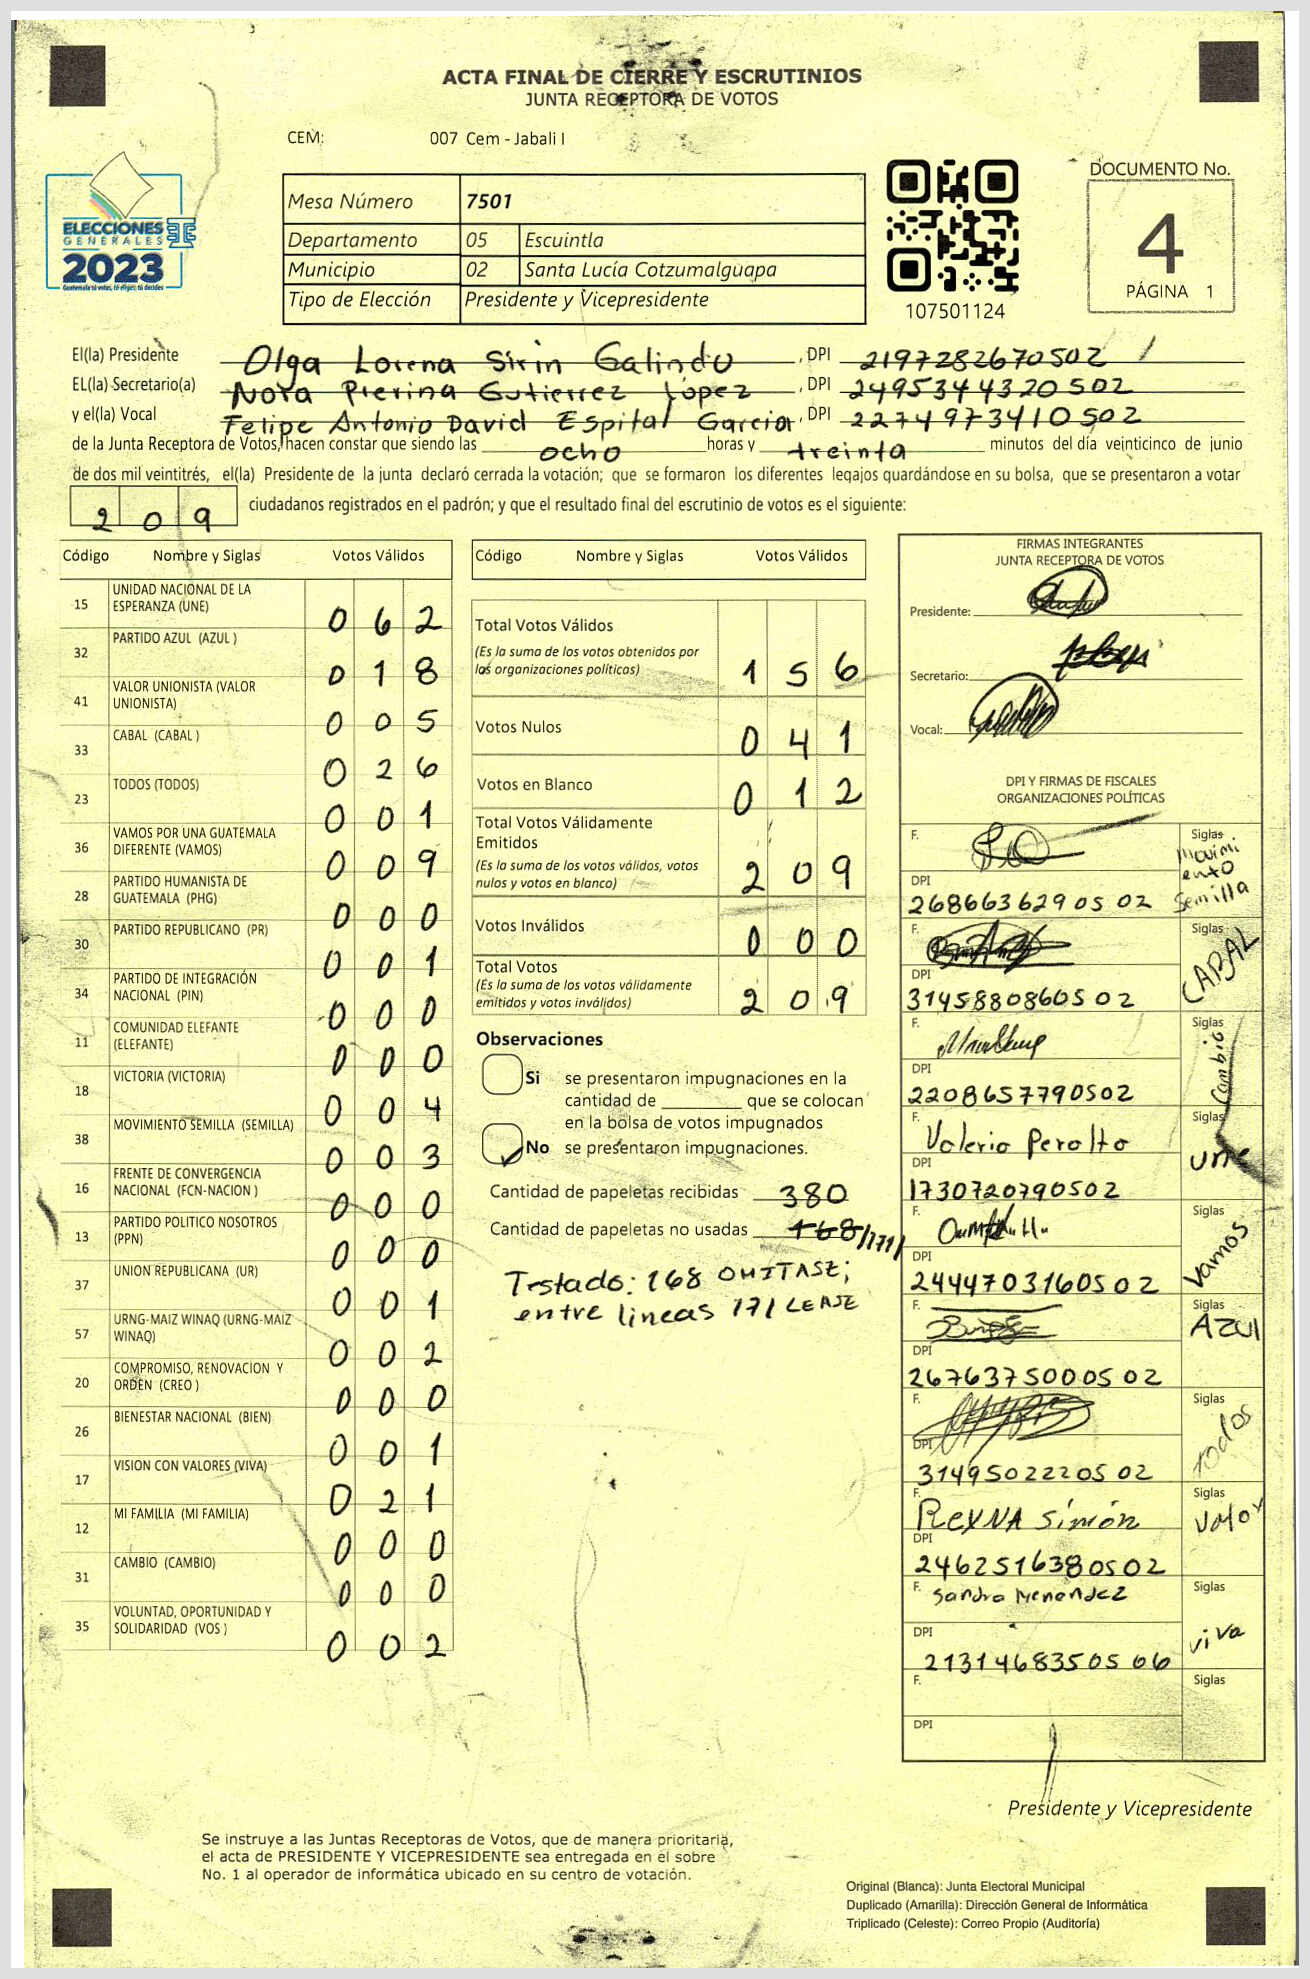 ACTA FINAL DE CIERRE Y ESCRUTINIOS
JUNTA RECEPTORA DE VOTOS
CEM: 007 Cem - Jabali I
ELECCIONES
GENERALES
2023
Guatemala tú votas, tú eliges, tú decides
Mesa Número 7501
Departamento 05 Escuintla
Municipio 02 Santa Lucía Cotzumalguapa
Tipo de Elección Presidente y Vicepresidente
107501124
DOCUMENTO No.
4
PÁGINA 1
El(la) Presidente Olga Lorena Sirin Galindo, DPI 2197282670502
EL(la) Secretario(a) Nora Pierina Gutierrez López, DPI 2495344320502
y el(la) Vocal Felipe Antonio David Espital Garcia, DPI 2274973410502
de la Junta Receptora de Votos, hacen constar que siendo las ocho horas y treinta minutos del día veinticinco de junio
de dos mil veintitrés, el(la) Presidente de la junta declaró cerrada la votación; que se formaron los diferentes legajos guardándose en su bolsa, que se presentaron a votar
209 ciudadanos registrados en el padrón; y que el resultado final del escrutinio de votos es el siguiente:
Código Nombre y Siglas Votos Válidos
15 UNIDAD NACIONAL DE LA ESPERANZA (UNE) 062
32 PARTIDO AZUL (AZUL ) 018
41 VALOR UNIONISTA (VALOR UNIONISTA) 005
33 CABAL (CABAL ) 026
23 TODOS (TODOS) 001
36 VAMOS POR UNA GUATEMALA DIFERENTE (VAMOS) 009
28 PARTIDO HUMANISTA DE GUATEMALA (PHG) 000
30 PARTIDO REPUBLICANO (PR) 001
34 PARTIDO DE INTEGRACIÓN NACIONAL (PIN) 000
11 COMUNIDAD ELEFANTE (ELEFANTE) 000
18 VICTORIA (VICTORIA) 004
38 MOVIMIENTO SEMILLA (SEMILLA) 003
16 FRENTE DE CONVERGENCIA NACIONAL (FCN-NACION ) 000
13 PARTIDO POLITICO NOSOTROS (PPN) 000
37 UNION REPUBLICANA (UR) 001
57 URNG-MAIZ WINAQ (URNG-MAIZ WINAQ) 002
20 COMPROMISO, RENOVACION Y ORDEN (CREO ) 000
26 BIENESTAR NACIONAL (BIEN) 001
17 VISION CON VALORES (VIVA) 021
12 MI FAMILIA (MI FAMILIA) 000
31 CAMBIO (CAMBIO) 000
35 VOLUNTAD, OPORTUNIDAD Y SOLIDARIDAD (VOS ) 002
Código Nombre y Siglas Votos Válidos
Total Votos Válidos 156
(Es la suma de los votos obtenidos por
las organizaciones políticas)
Votos Nulos 041
Votos en Blanco 012
Total Votos Válidamente
Emitidos 209
(Es la suma de los votos válidos, votos
nulos y votos en blanco)
Votos Inválidos 000
Total Votos 209
(Es la suma de los votos válidamente
emitidos y votos inválidos)
Observaciones
Si se presentaron impugnaciones en la
cantidad de ________ que se colocan
en la bolsa de votos impugnados
No se presentaron impugnaciones.
Cantidad de papeletas recibidas 380
Cantidad de papeletas no usadas 168/171/
Testado: 168 OMITASE;
entre lineas 171 LEASE
FIRMAS INTEGRANTES
JUNTA RECEPTORA DE VOTOS
Presidente:
Secretario:
Vocal:
DPI Y FIRMAS DE FISCALES
ORGANIZACIONES POLÍTICAS
F. Siglas Movimiento Semilla
DPI 2686636290502
F. Siglas CABAL
DPI 3145880860502
F. Siglas Cambio
DPI 2208657790502
F. Valeria Peralta Siglas une
DPI 1730720790502
F. Siglas Vamos
DPI 2444703160502
F. Siglas AZUL
DPI 2676375000502
F. Siglas Todos
DPI 3149502220502
F. REYNA Simón Siglas Valor
DPI 2462516380502
F. Sandra Menendez Siglas viva
DPI 2131468350506
F. Siglas
DPI
Presidente y Vicepresidente
Se instruye a las Juntas Receptoras de Votos, que de manera prioritaria,
el acta de PRESIDENTE Y VICEPRESIDENTE sea entregada en el sobre
No. 1 al operador de informática ubicado en su centro de votación.
Original (Blanca): Junta Electoral Municipal
Duplicado (Amarilla): Dirección General de Informática
Triplicado (Celeste): Correo Propio (Auditoría)